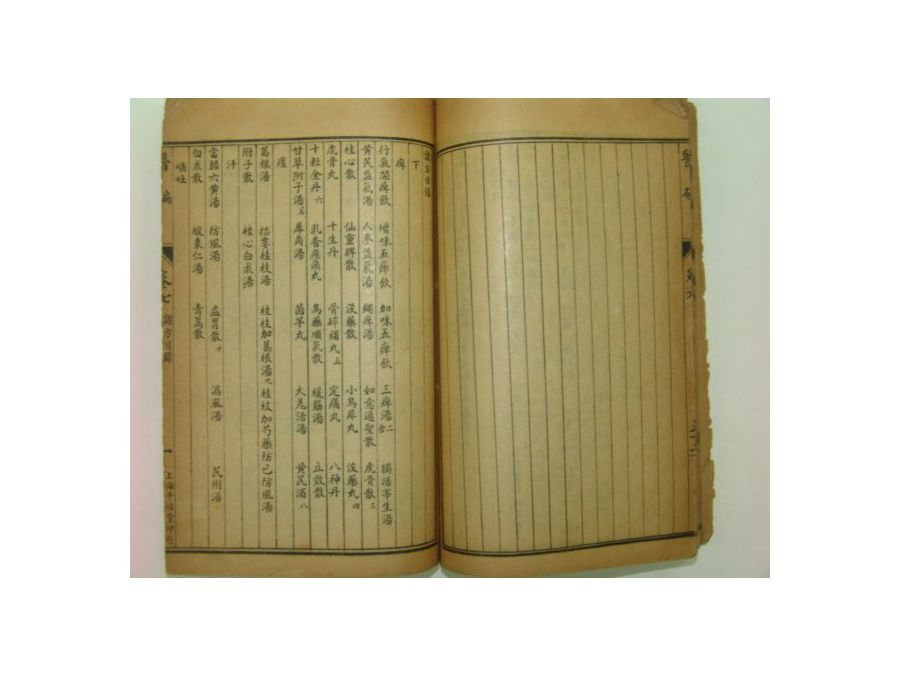 諸方目錄
下
痺
行氣開痺飲 增味五痺飲 加味五痺飲 三痺湯二 獨活寄生湯
黃芪益氣湯 人參益氣湯 蠲痺湯 如意通聖散 虎骨散三
桂心散 仙靈脾散 沒藥散 小烏犀丸 沒藥丸四
虎骨丸 十生丹 骨碎補丸五 定痛丸 八神丹
十粒金丹六 乳香應痛丸 烏藥順氣散 緩筋湯 立效散
甘草附子湯七 犀角湯 茵芋丸 大羌活湯 黃芪酒八
痙
葛根湯 括蔞桂枝湯 桂枝加葛根湯九 桂枝加芍藥防已防風湯
附子散 桂心白朮湯
汗
當歸六黃湯 防風湯 益胃散十 瀉風湯 芪附湯
白朮散 酸棗仁湯 青蒿散
嘔吐
醫編 卷七 諸方目錄 一 上海 印行